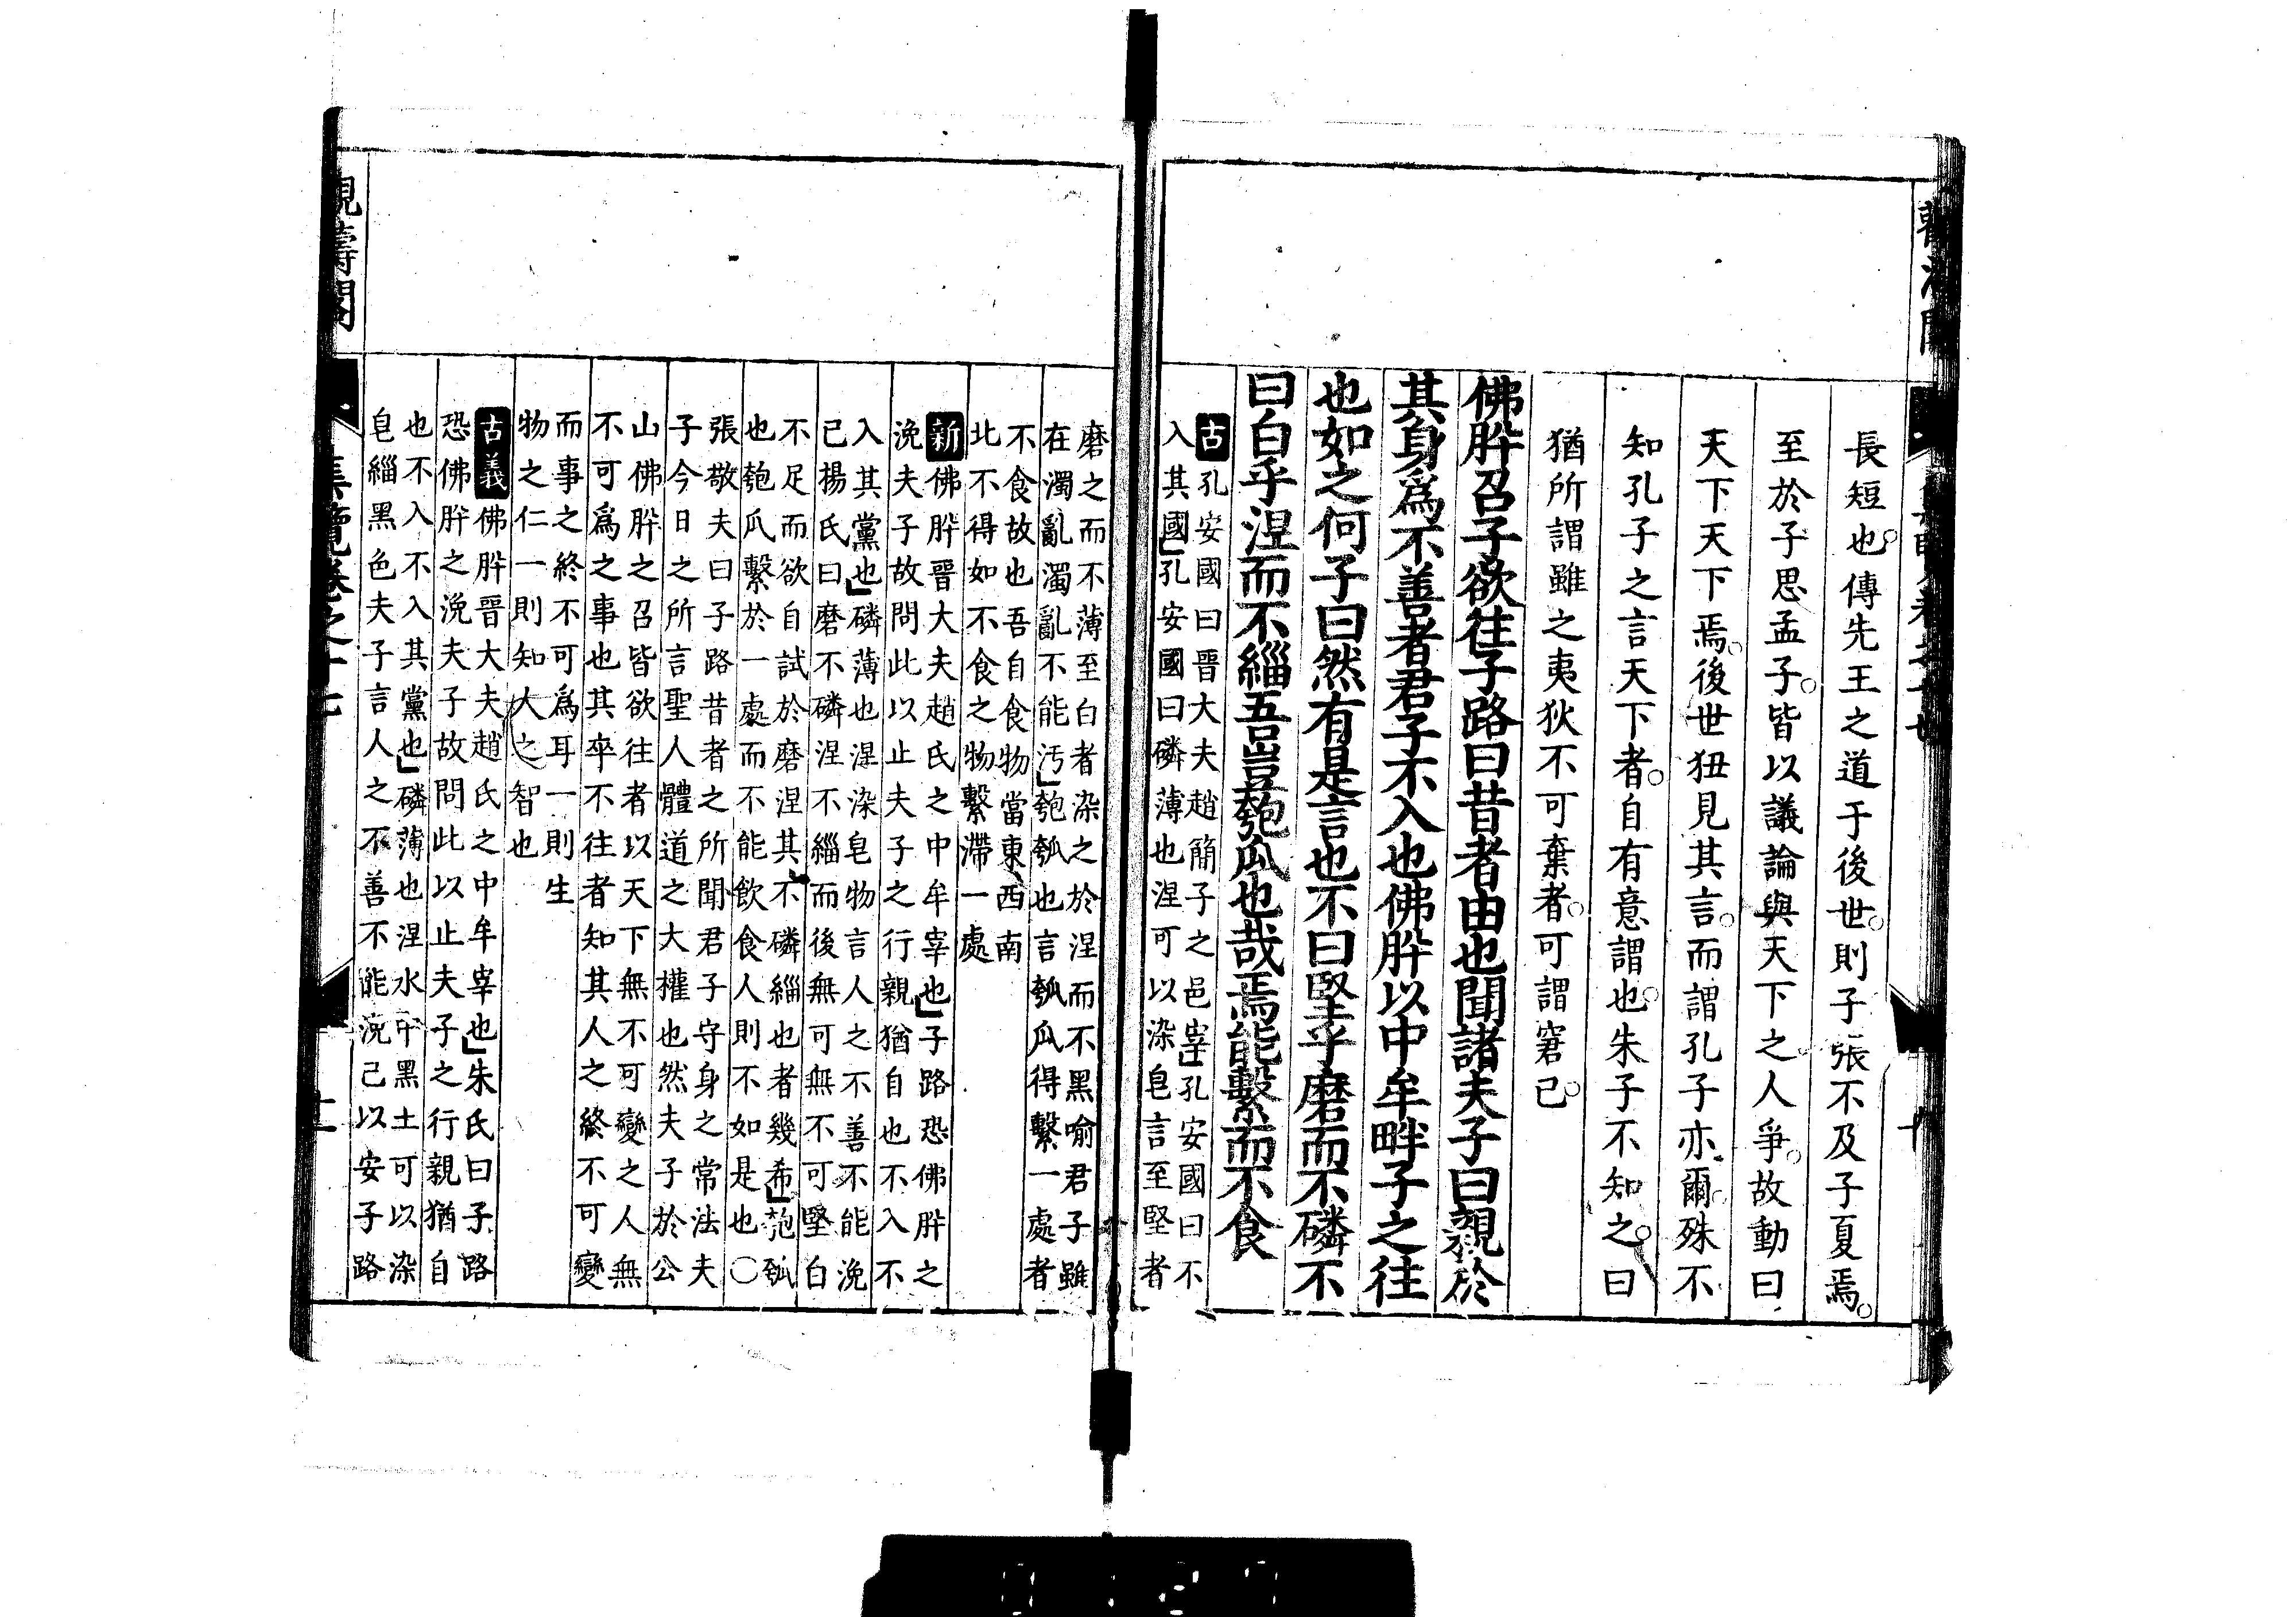 長短也傳先王之道于後世則子張不及子夏焉
至於子思孟子皆以議論與天下之人爭故動曰
天下天下焉後世狃見其言而謂孔子亦爾殊不
知孔子之言天下者自有意謂也朱子不知之曰
猶所謂雖之夷狄不可棄者可謂窘已
佛肸召子欲往子路曰昔者由也聞諸夫子曰親於
其身爲不善者君子不入也佛肸以中牟畔子之往
也如之何子曰然有是言也不曰堅乎磨而不磷不
曰白乎涅而不緇吾豈匏瓜也哉焉能繫而不食
古孔安國曰晉大夫趙簡子之邑宰孔安國曰不
入其國孔安國曰磷薄也涅可以染皂言至堅者
磨之而不薄至白者染之於涅而不黑喻君子雖
在濁亂濁亂不能汚匏瓠也言瓠瓜得繫一處者
不食故也吾自食物當東西南
北不得如不食之物繫滯一處
新佛肸晉大夫趙氏之中牟宰也子路恐佛肸之
浼夫子故問此以止夫子之行親猶自也不入不
入其黨也磷薄也涅染皂物言人之不善不能浼
己揚氏曰磨不磷涅不緇而後無可無不可堅白
不足而欲自試於磨涅其不磷緇也者幾希匏瓠
也匏瓜繫於一處而不能飲食人則不如是也〇
張敬夫曰子路昔者之所聞君子守身之常法夫
子今日之所言聖人體道之大權也然夫子於公
山佛肸之召皆欲往者以天下無不可變之人無
不可爲之事也其卒不往者知其人之終不可變
而事之終不可爲耳一則生
物之仁一則知大之智也
古義佛肸晉大夫趙氏之中牟宰也朱氏曰子路
恐佛肸之浼夫子故問此以止夫子之行親猶自
也不入不入其黨也磷薄也涅水中黑土可以染
皂緇黑色夫子言人之不善不能浼己以安子路
集覽卷之十七